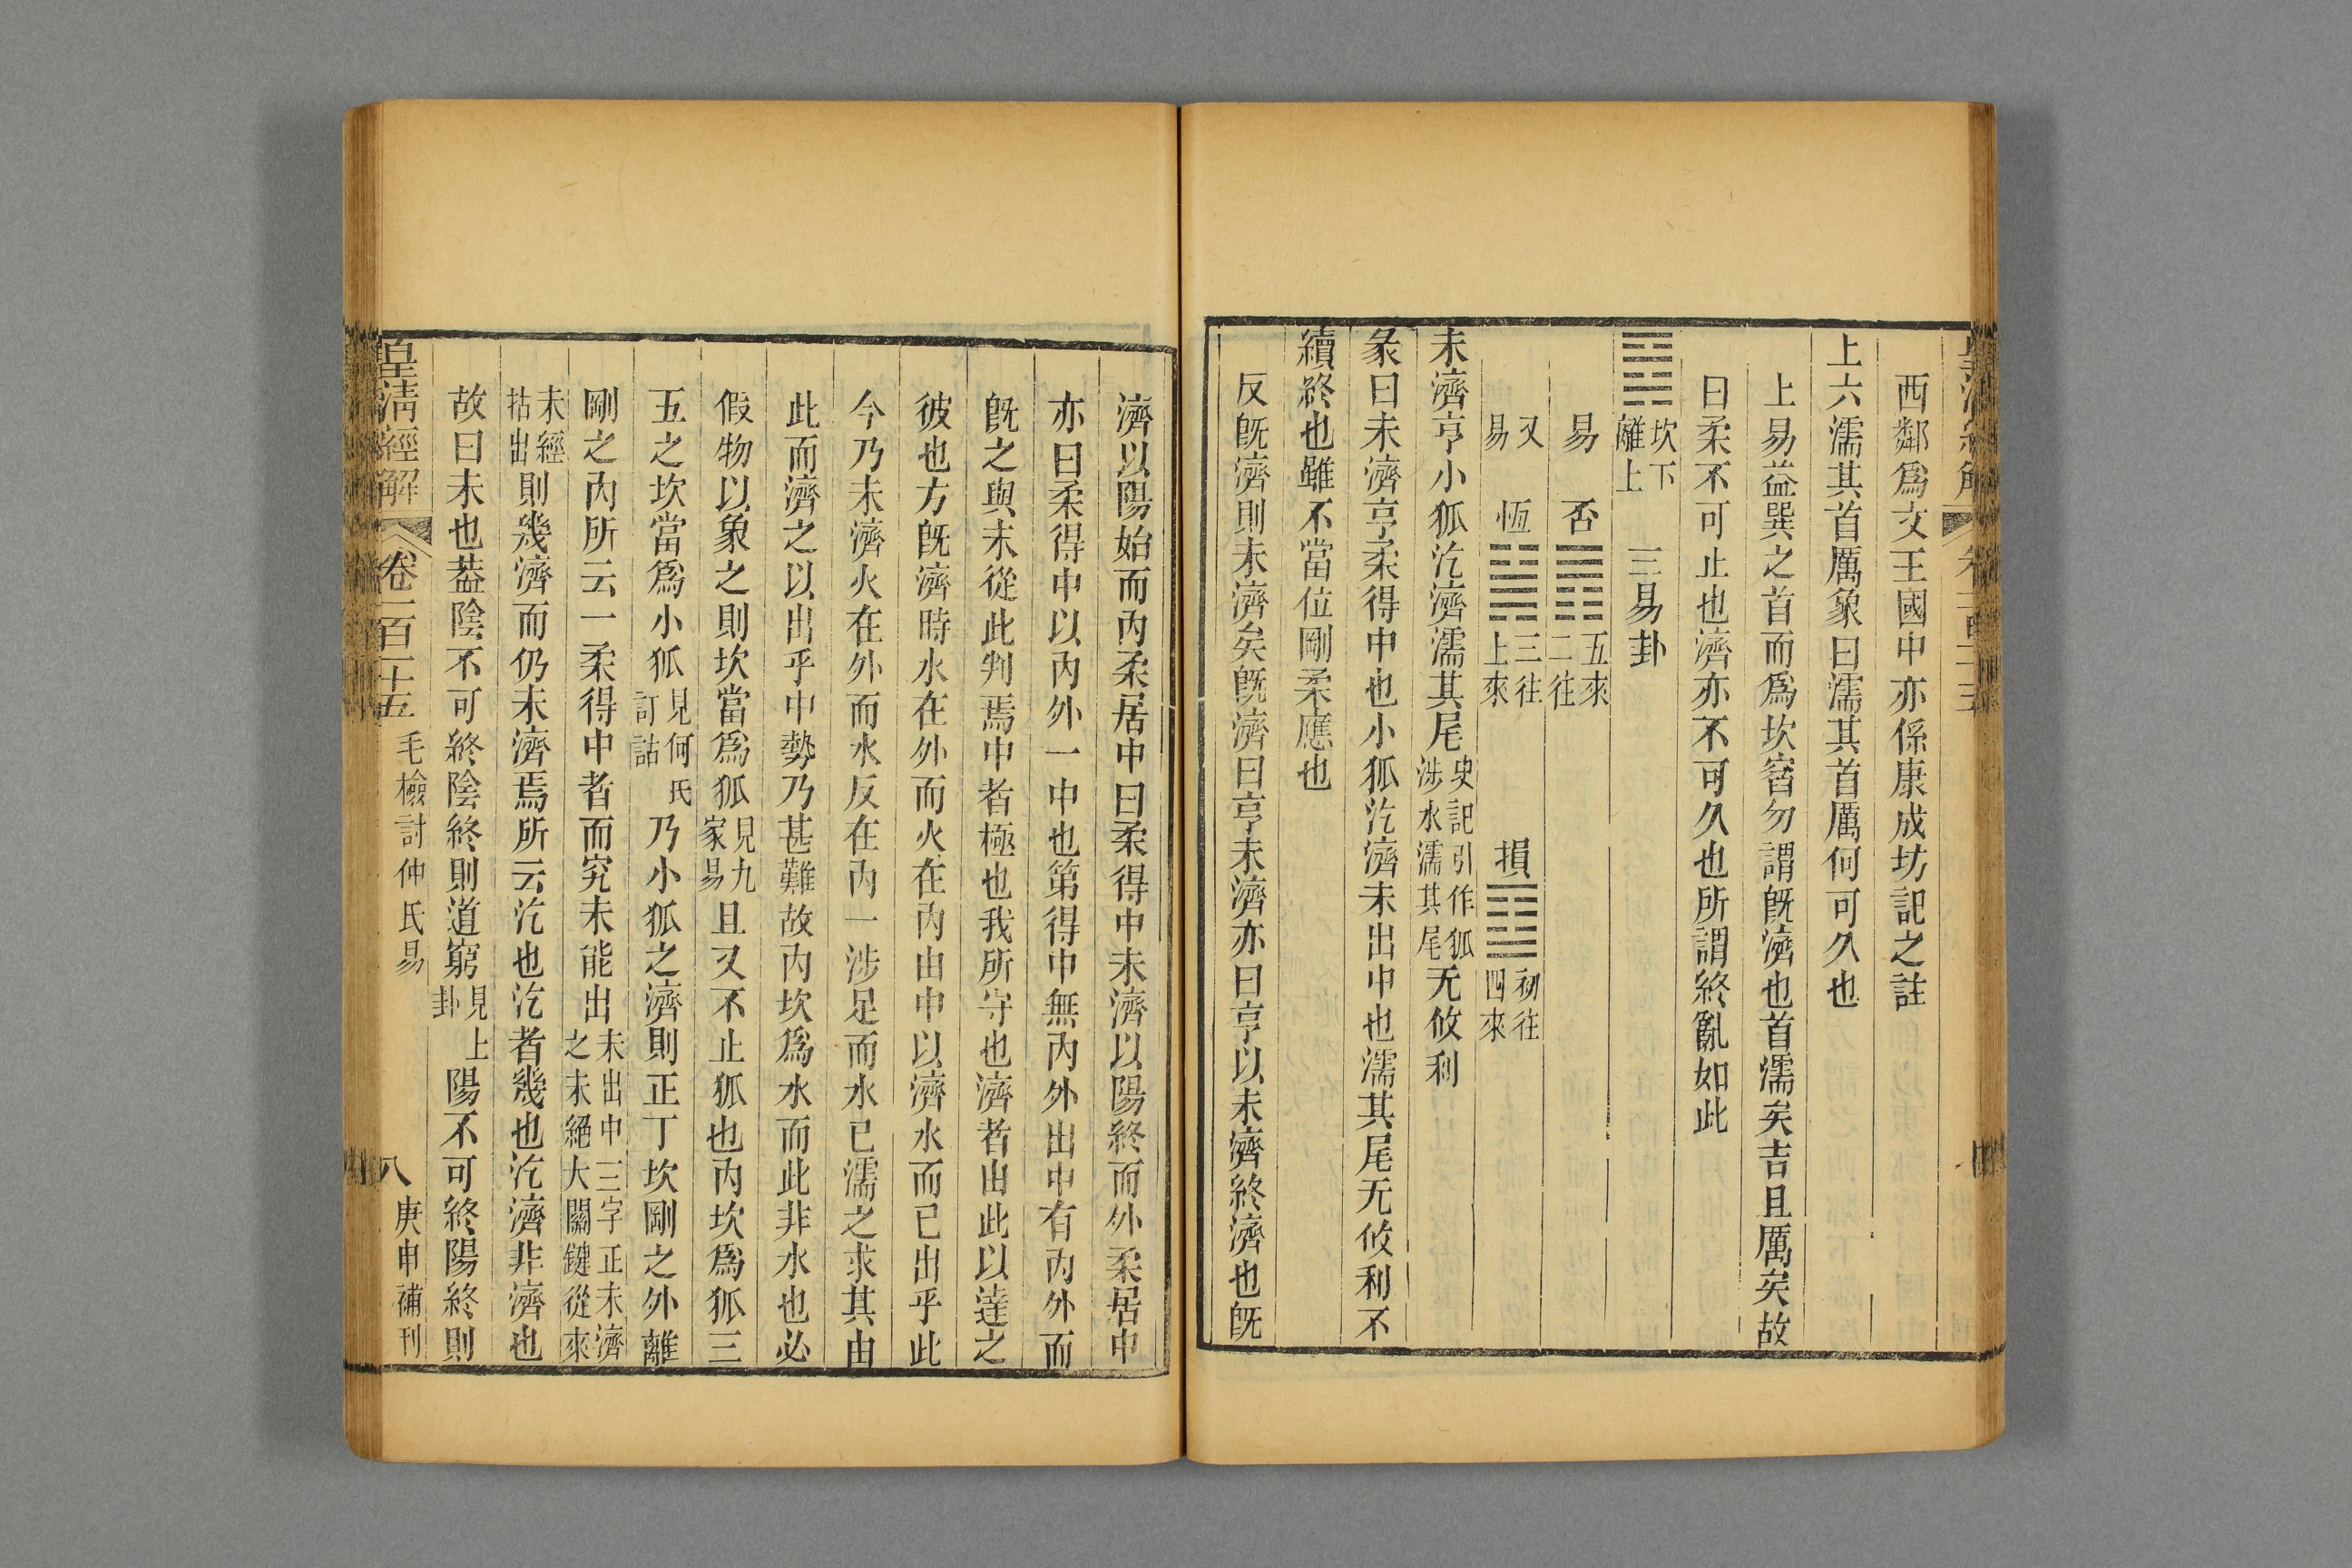 西鄰爲文王國中亦係康成坊記之註
上六濡其首厲象曰濡其首厲何可久也
上易益巽之首而爲坎窞勿謂旣濟也首濡矣吉且厲矣故
曰柔不可止也濟亦不可久也所謂終亂如此
坎下離上 三易卦
易 否 五來二往
又易 恆 三往上來 損 初往四來
未濟亨小狐汔濟濡其尾史記引作狐涉水濡其尾无攸利
彖曰未濟亨柔得中也小狐汔濟未出中也濡其尾无攸利不
續終也雖不當位剛柔應也
反旣濟則未濟矣旣濟曰亨未濟亦曰亨以未濟終濟也旣
濟以陽始而內柔居中曰柔得中未濟以陽終而外柔居中
亦曰柔得中以內外一中也第得中無內外出中有內外而
旣之與未從此判焉中者極也我所守也濟者由此以達之
彼也方旣濟時水在外而火在內由中以濟水而已出乎此
今乃未濟火在外而水反在內一涉足而水已濡之求其由
此而濟之以出乎中勢乃甚難故內坎爲水而此非水也必
假物以象之則坎當爲狐見九家易且又不止狐也內坎爲狐三
五之坎當爲小狐見何氏訂詁乃小狐之濟則正丁坎剛之外離
剛之內所云一柔得中者而究未能出未出中三字正未濟之未絕大關鍵從來
未經拈出則幾濟而仍未濟焉所云汔也汔者幾也汔濟非濟也
故曰未也葢陰不可終陰終則道窮見上卦陽不可終陽終則
皇清經解 卷一百二十五 毛檢討仲氏易 八 庚申補刊